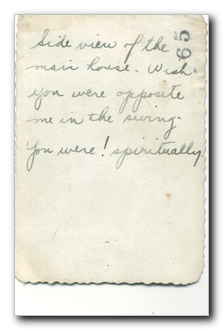 Side view of the
main house. Wish
you were opposite
me in the swing.
You were! spiritually.
65